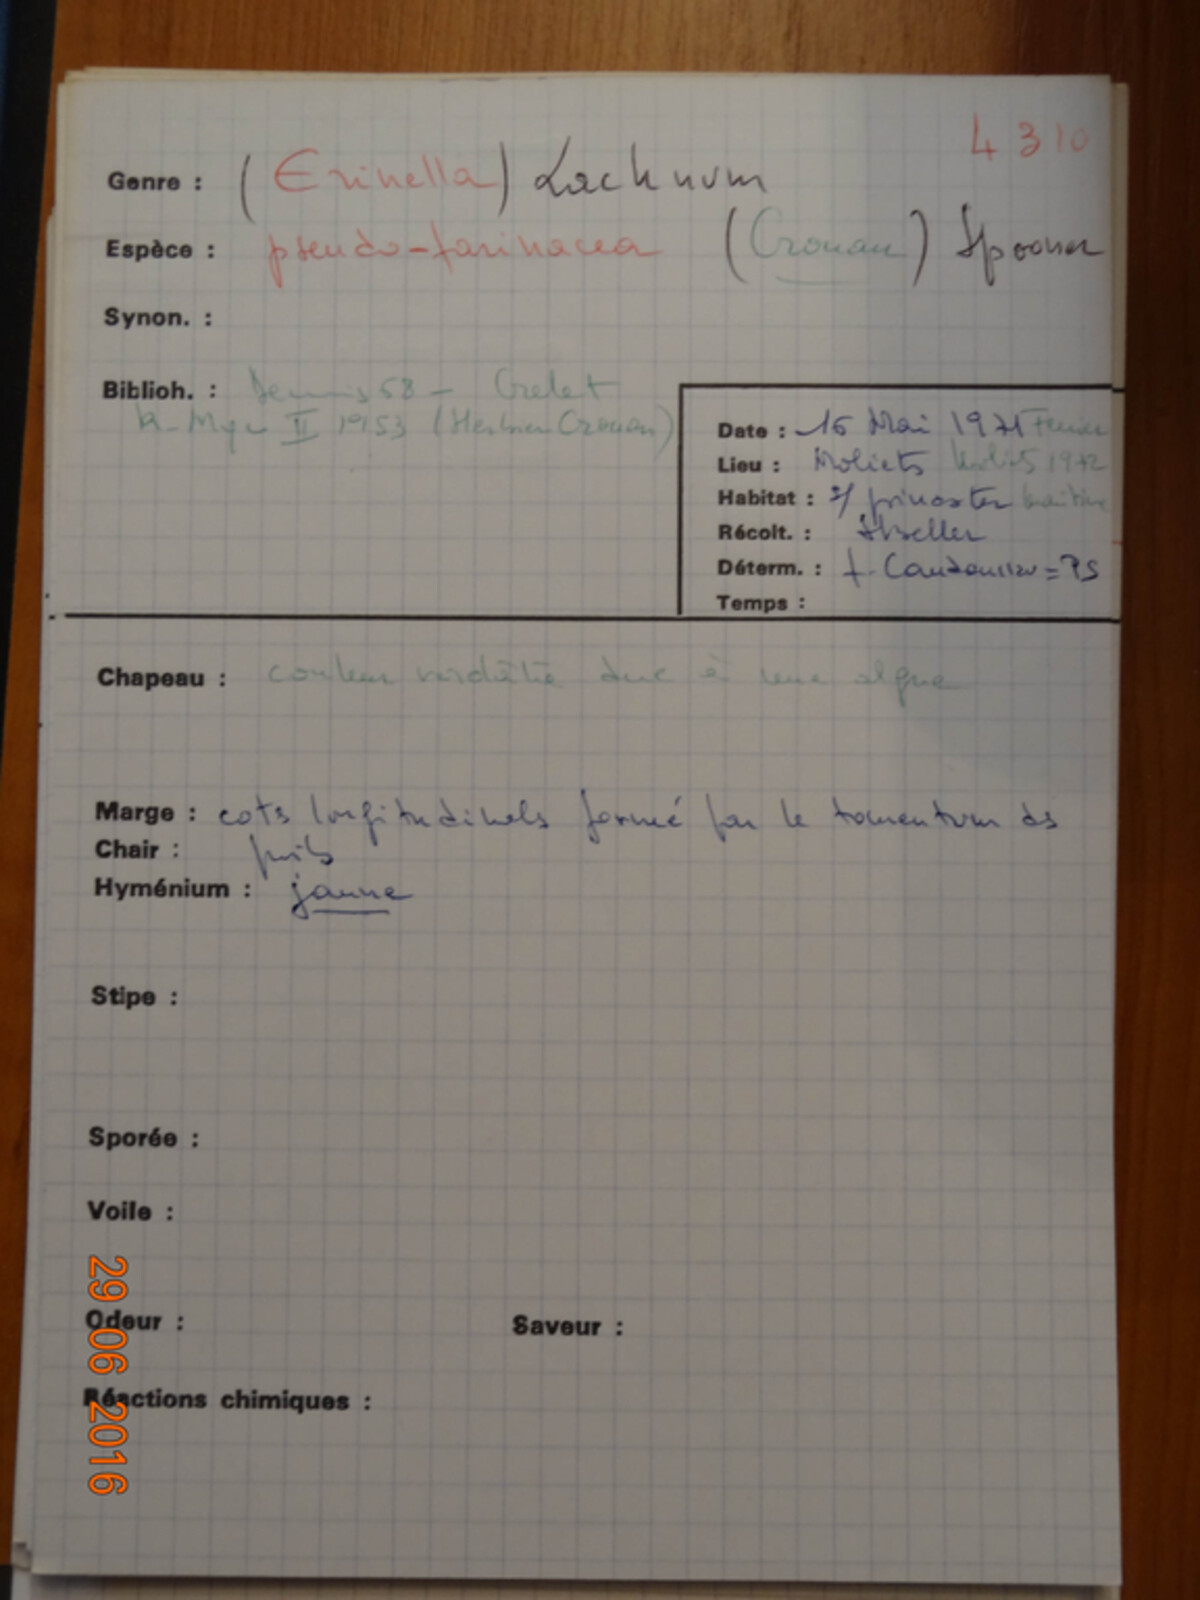 4310
Genre : (Erinella) Lachnum
Espèce : pseudo-farinacea (Crouan) Spooner
Synon. :
Biblioh. : Dennis 58 - Grelet
R. Myc II 1953 (Herbier Crouan)
Date : 15 Mai 1971 Fevrier
Lieu : Moliets Moliets 1972
Habitat : s/ pinaster maritime
Récolt. :
Déterm. : f. Candoussau = PS
Temps :
Chapeau : couleur verdâtre due à une algue
Marge : cots longitudinels formé par le tomentum des
Chair : poils
Hyménium : jaune
Stipe :
Sporée :
Voile :
Odeur : Saveur :
Réactions chimiques :
29 06 2016